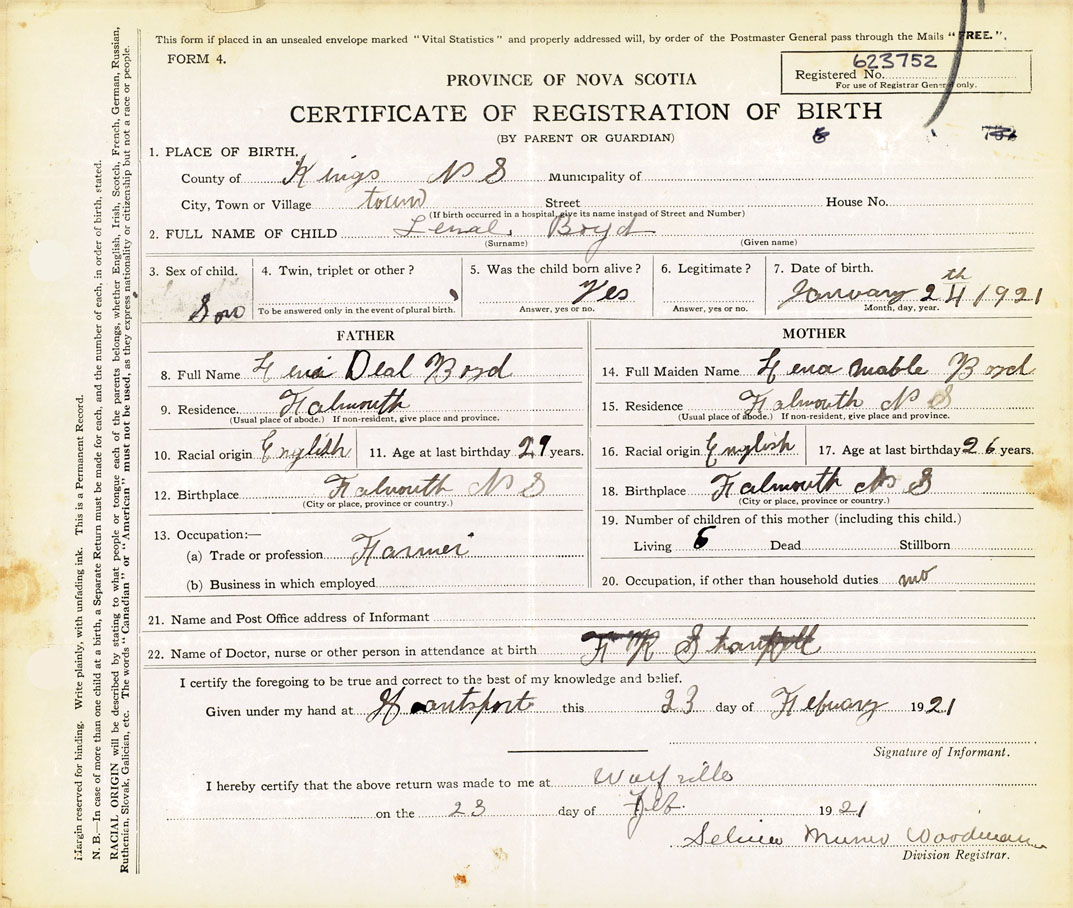 This form if placed in an unsealed envelope marked "Vital Statistics" and properly addressed will, by order of the Postmaster General pass through the Mails "FREE."
FORM 4.
623752
Registered No.
For use of Registrar General only.
PROVINCE OF NOVA SCOTIA
CERTIFICATE OF REGISTRATION OF BIRTH
(BY PARENT OR GUARDIAN)
1. PLACE OF BIRTH.
County of Kings N S Municipality of
City, Town or Village town Street House No.
(If birth occurred in a hospital, give its name instead of Street and Number)
2. FULL NAME OF CHILD Boyd
(Surname) (Given name)
3. Sex of child. 4. Twin, triplet or other? 5. Was the child born alive? 6. Legitimate? 7. Date of birth.
Son Yes January 24th 1921
To be answered only in the event of plural birth. Answer, yes or no. Answer, yes or no. Month, day, year.
FATHER MOTHER
8. Full Name Deal Boyd 14. Full Maiden Name Lena mable Boyd
9. Residence. Falmouth 15. Residence Falmouth N S
(Usual place of abode.) If non-resident, give place and province. (Usual place of abode.) If non-resident, give place and province.
10. Racial origin English 11. Age at last birthday 29 years. 16. Racial origin English 17. Age at last birthday 26 years.
12. Birthplace Falmouth N S 18. Birthplace Falmouth N S
(City or place, province or country.) (City or place, province or country.)
13. Occupation:— 19. Number of children of this mother (including this child.)
(a) Trade or profession Farmer Living Dead Stillborn
(b) Business in which employed 20. Occupation, if other than household duties no
21. Name and Post Office address of Informant
22. Name of Doctor, nurse or other person in attendance at birth
I certify the foregoing to be true and correct to the best of my knowledge and belief.
Given under my hand at Hantsport this 23 day of Febuary 1921
Signature of Informant.
I hereby certify that the above return was made to me at Wolfville
on the 23 day of Feb. 1921
Selina Munro Woodman
Division Registrar.
Margin reserved for binding. Write plainly, with unfading ink. This is a Permanent Record.
N. B.—In case of more than one child at a birth, a Separate Return must be made for each, and the number of each, in order of birth, stated.
RACIAL ORIGIN will be described by stating to what people or tongue each of the parents belongs, whether English, Irish, Scotch, French, German, Russian,
Ruthenian, Slovak, Galician, etc. The words "Canadian" or "American" must not be used, as they express nationality or citizenship but not a race or people.